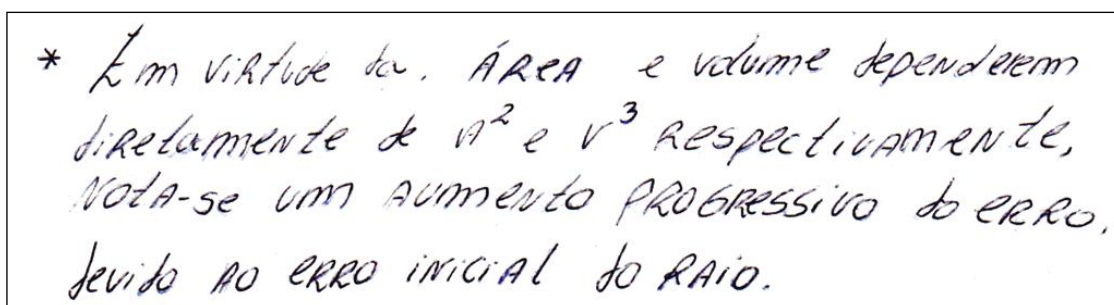 * Em virtude da. ÁReA e volume dependerem
diretamente de r² e r³ Respectivamente,
NotA-se um Aumento PROGRESSIVO do eRRO,
devido AO eRRO iNiciAl do RAio.